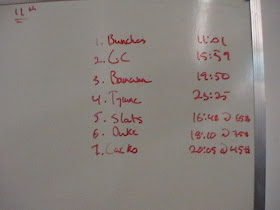 11"
1. Bunches 11:01
2. GC 15:59
3. Banana 19:50
4. Tyane 23:25
5. Slats 16:48 @ 65%
6. Duke 18:10 @ 75%
7. Cacko 20:05 @ 45%